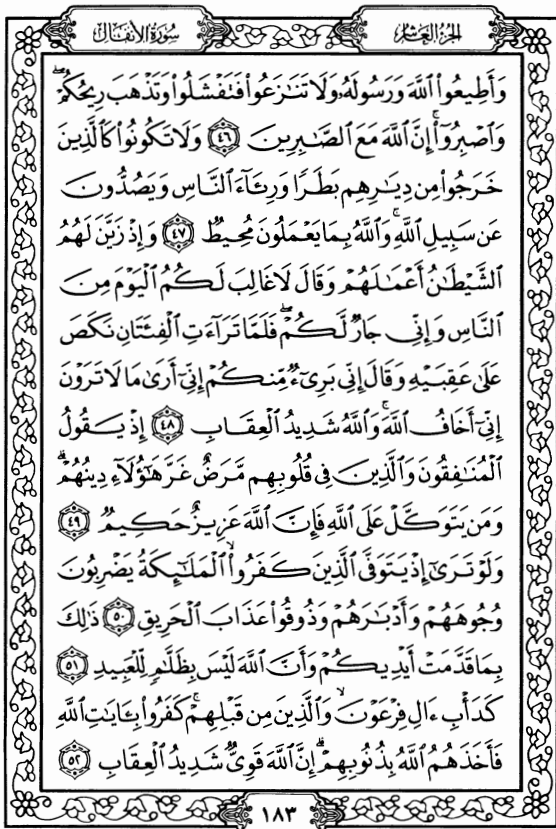 سُورَةُ الأَنفَال
الجُزْءُ العَاشِرُ
وَأَطِيعُوا۟ ٱللَّهَ وَرَسُولَهُۥ وَلَا تَنَٰزَعُوا۟ فَتَفْشَلُوا۟ وَتَذْهَبَ رِيحُكُمْ ۖ
وَٱصْبِرُوٓا۟ ۚ إِنَّ ٱللَّهَ مَعَ ٱلصَّٰبِرِينَ ٤٦ وَلَا تَكُونُوا۟ كَٱلَّذِينَ
خَرَجُوا۟ مِن دِيَٰرِهِم بَطَرًا وَرِئَآءَ ٱلنَّاسِ وَيَصُدُّونَ
عَن سَبِيلِ ٱللَّهِ ۚ وَٱللَّهُ بِمَا يَعْمَلُونَ مُحِيطٌ ٤٧ وَإِذْ زَيَّنَ لَهُمُ
ٱلشَّيْطَٰنُ أَعْمَٰلَهُمْ وَقَالَ لَا غَالِبَ لَكُمُ ٱلْيَوْمَ مِنَ
ٱلنَّاسِ وَإِنِّى جَارٌ لَّكُمْ ۖ فَلَمَّا تَرَآءَتِ ٱلْفِئَتَانِ نَكَصَ
عَلَىٰ عَقِبَيْهِ وَقَالَ إِنِّى بَرِىٓءٌ مِّنكُمْ إِنِّىٓ أَرَىٰ مَا لَا تَرَوْنَ
إِنِّىٓ أَخَافُ ٱللَّهَ ۚ وَٱللَّهُ شَدِيدُ ٱلْعِقَابِ ٤٨ إِذْ يَقُولُ
ٱلْمُنَٰفِقُونَ وَٱلَّذِينَ فِى قُلُوبِهِم مَّرَضٌ غَرَّ هَٰٓؤُلَآءِ دِينُهُمْ ۗ
وَمَن يَتَوَكَّلْ عَلَى ٱللَّهِ فَإِنَّ ٱللَّهَ عَزِيزٌ حَكِيمٌ ٤٩
وَلَوْ تَرَىٰٓ إِذْ يَتَوَفَّى ٱلَّذِينَ كَفَرُوا۟ ۙ ٱلْمَلَٰٓئِكَةُ يَضْرِبُونَ
وُجُوهَهُمْ وَأَدْبَٰرَهُمْ وَذُوقُوا۟ عَذَابَ ٱلْحَرِيقِ ٥٠ ذَٰلِكَ
بِمَا قَدَّمَتْ أَيْدِيكُمْ وَأَنَّ ٱللَّهَ لَيْسَ بِظَلَّٰمٍ لِّلْعَبِيدِ ٥١
كَدَأْبِ ءَالِ فِرْعَوْنَ ۙ وَٱلَّذِينَ مِن قَبْلِهِمْ ۚ كَفَرُوا۟ بِـَٔايَٰتِ ٱللَّهِ
فَأَخَذَهُمُ ٱللَّهُ بِذُنُوبِهِمْ ۗ إِنَّ ٱللَّهَ قَوِىٌّ شَدِيدُ ٱلْعِقَابِ ٥٢
١٨٣